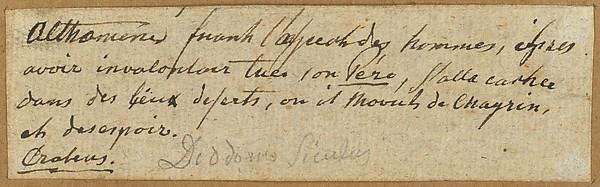 Althamenes fuiant l'aspect des hommes, après
avoir involontair tué son Père, s'alla cacher
dans des lieux deserts, ou il mourut de Chagrin,
et desespoir.
Diodorus Siculus